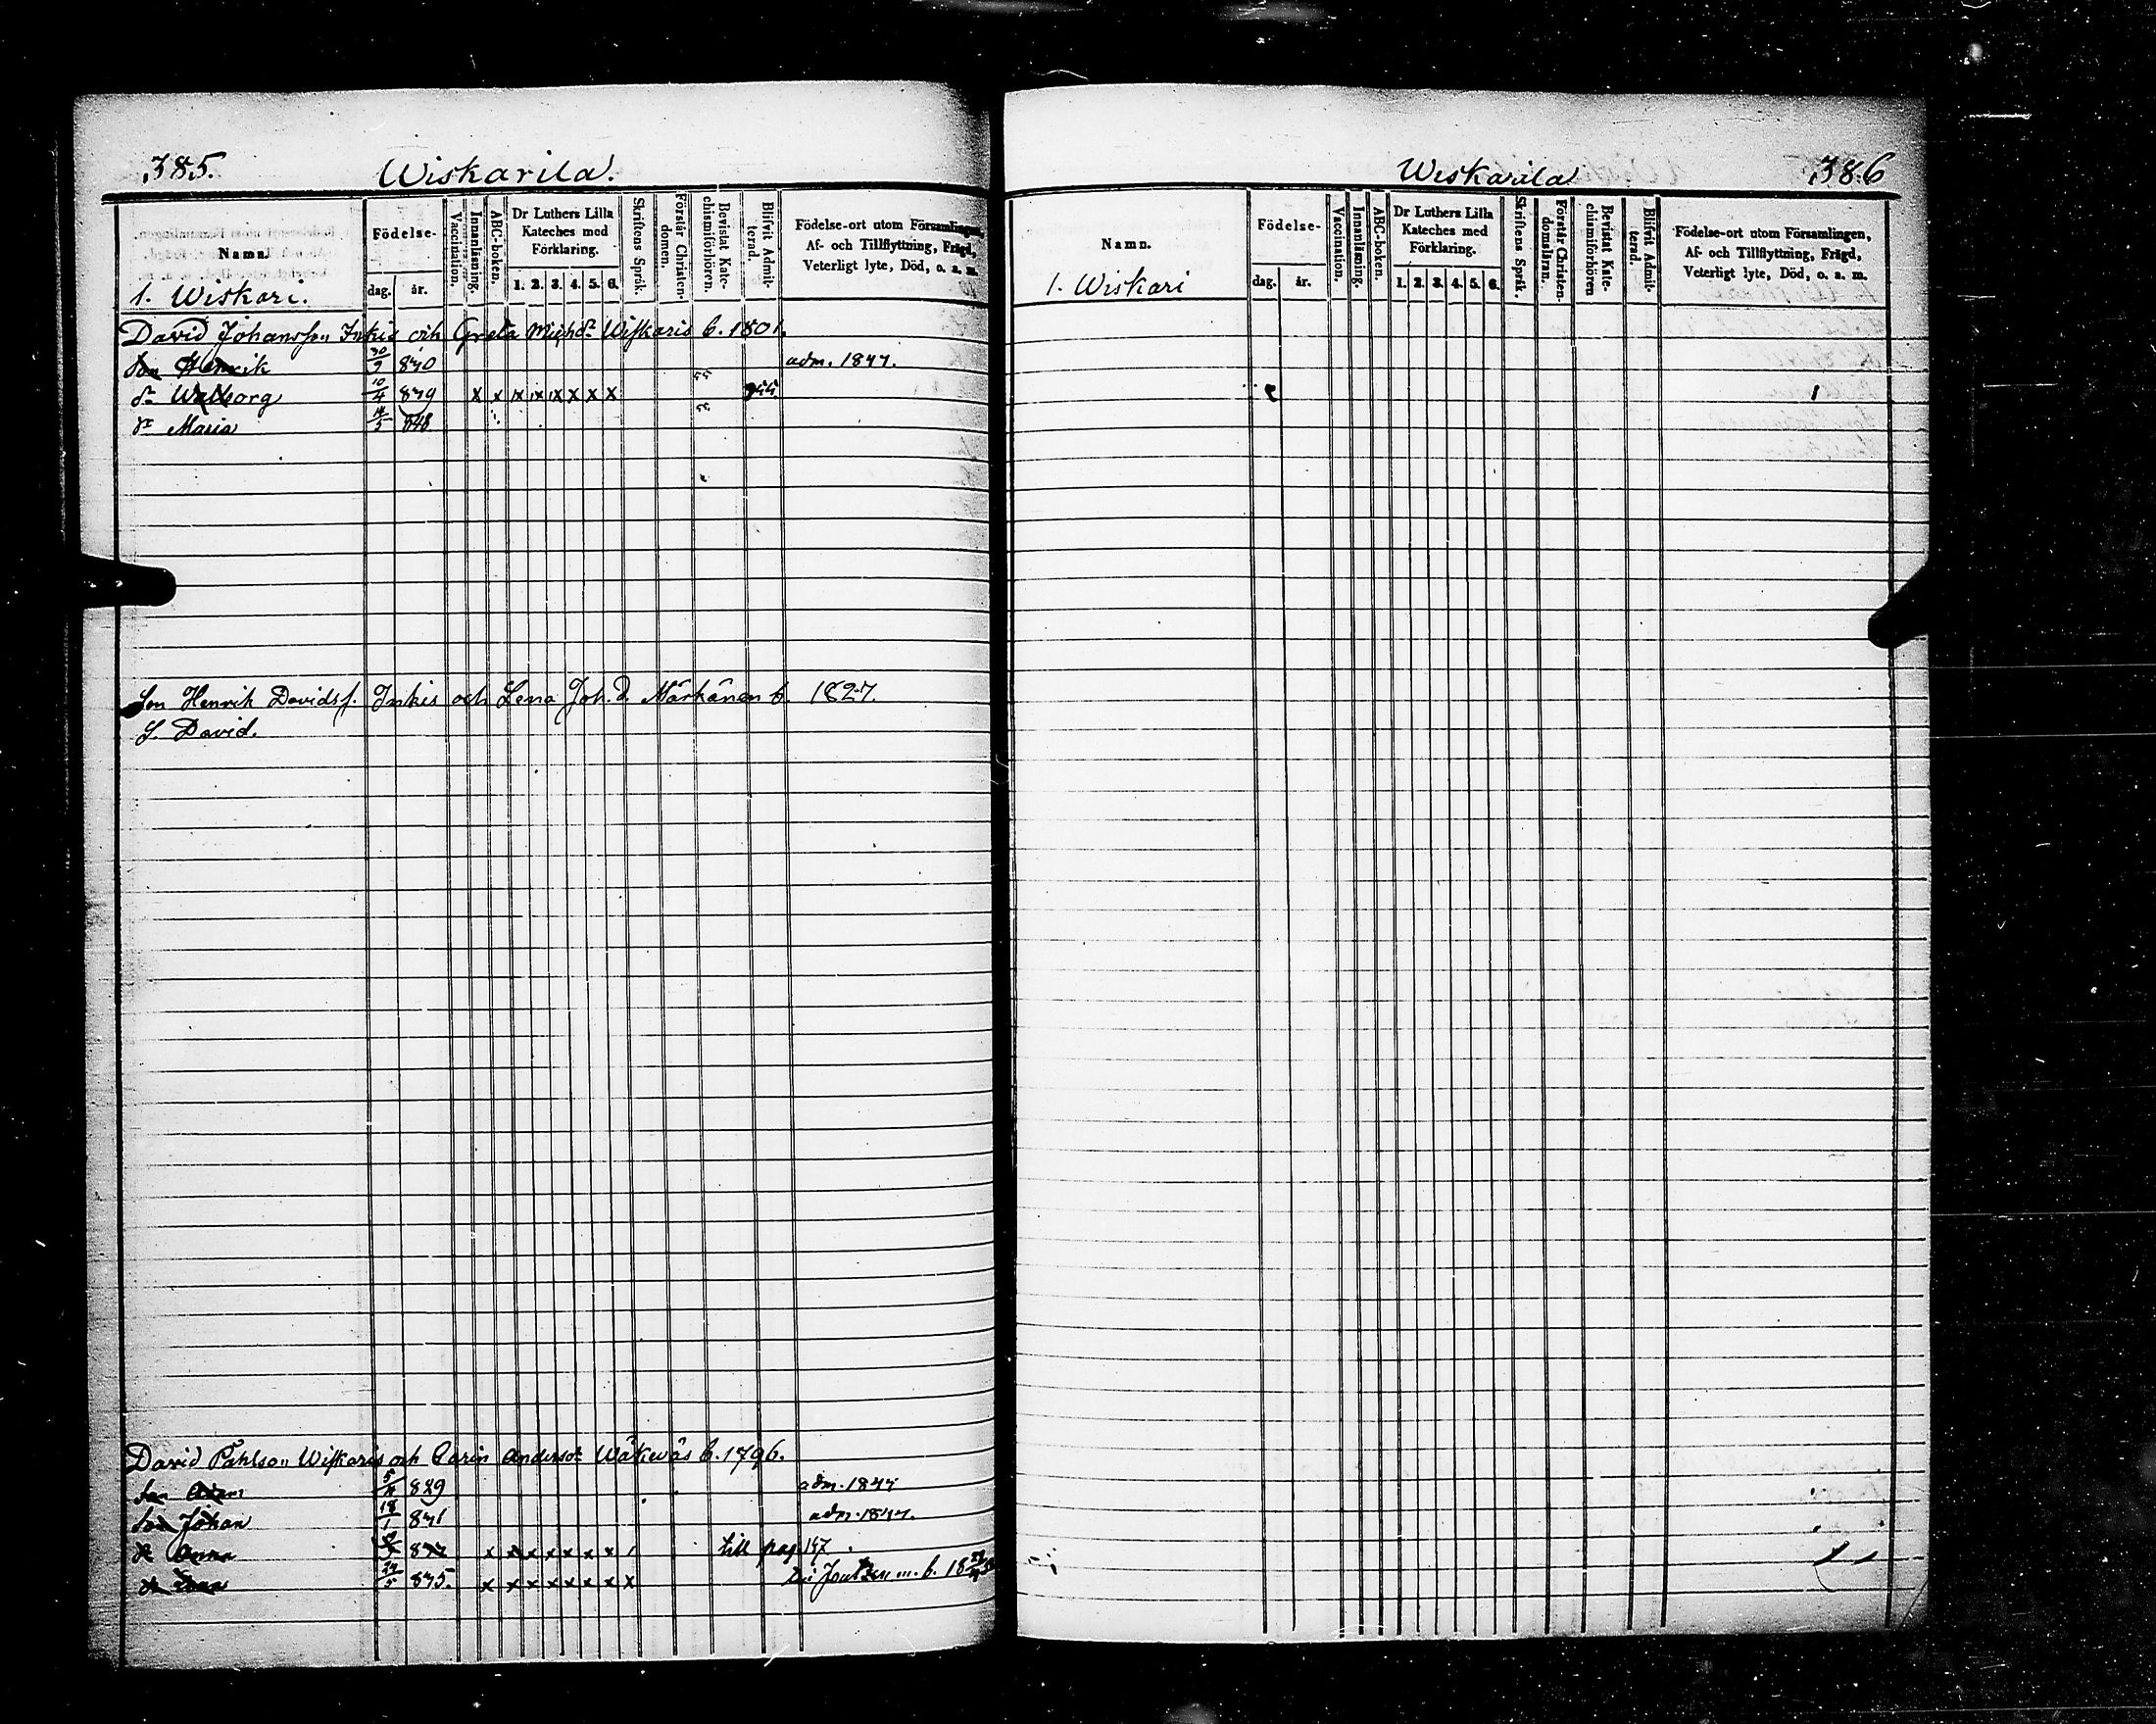 385. Wiskarila.
Namn. Födelse- dag. år. Vaccination. Innanläsning. ABC-boken. Dr Luthers Lilla Kateches med Förklaring. 1. 2. 3. 4. 5. 6. Skriftens Språk. Förstår Christendomen. Bevistat Katechismiförhören. Blifvit Admitterad. Födelse-ort utom Församlingen, Af- och Tillflyttning, Frägd, Veterligt lyte, Död, o. s. m.
1. Wiskari.
David Johansson Inkis och Greta Wiskaris b. 1801.
Son Henrik 30/9 830 adm. 1847.
Walborg 10/4 839 x x x x x x x x 55
Maria 848
Son Henrik Davidss. Inkis och Lena Joh. d. Märkänen b. 1827.
S. David.
David Påhlson Wiskaris och Carin Wäkeväs b. 1796.
829 adm. 1847
Son Johan 18/1 831 adm. 1847.
Anna x x x x x x x till pag. 147
24/5 835. x x x x x x x x
Wiskarila 386
Namn. Födelse- dag. år. Vaccination. Innanläsning. ABC-boken. Dr Luthers Lilla Kateches med Förklaring. 1. 2. 3. 4. 5. 6. Skriftens Språk. Förstår Christendomsläran. Bevistat Katechismiförhören Blifvit Admitterad. Födelse-ort utom Församlingen, Af- och Tillflyttning, Frägd, Veterligt lyte, Död, o. s. m.
1. Wiskari